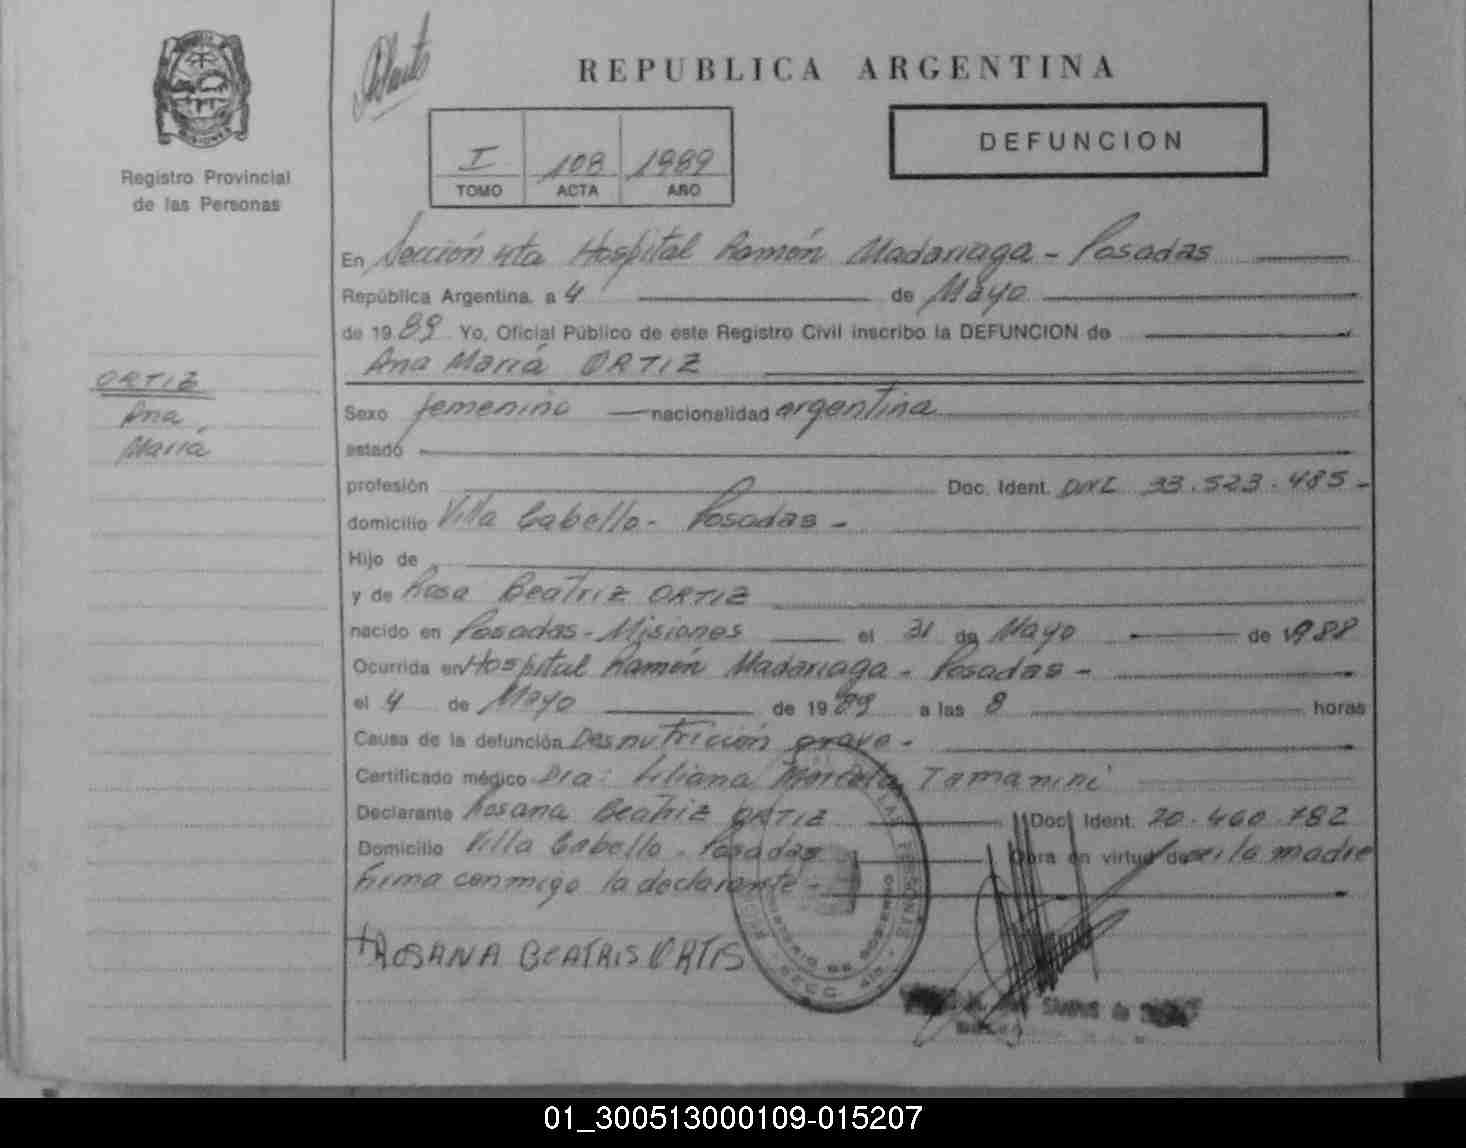 REPUBLICA ARGENTINA
Registro Provincial
de las Personas
I 108 1989
TOMO ACTA AÑO
DEFUNCION
En Sección 4ta Hospital Ramón Madariaga - Posadas
República Argentina, a 4 de Mayo
de 1989 Yo, Oficial Público de este Registro Civil inscribo la DEFUNCION de
Ana María ORTIZ
ORTIZ
Ana
María
Sexo femenino nacionalidad argentina
estado
profesión Doc. Ident. DNI 33.523.485-
domicilio Villa Cabello - Posadas -
Hijo de
y de Rosa Beatriz ORTIZ
nacido en Posadas - Misiones el 31 de Mayo de 1988
Ocurrida en Hospital Ramón Madariaga - Posadas -
el 4 de Mayo de 1989 a las 8 horas
Causa de la defunción Desnutrición grave -
Certificado médico Dra: Liliana Marcela Tamanini
Declarante Rosana Beatriz ORTIZ Doc. Ident. 20.460.782
Domicilio Villa Cabello - Posadas Obra en virtud de ser la madre
firma conmigo la declarante -
ROSANA BEATRIS ORTIS
01_300513000109-015207